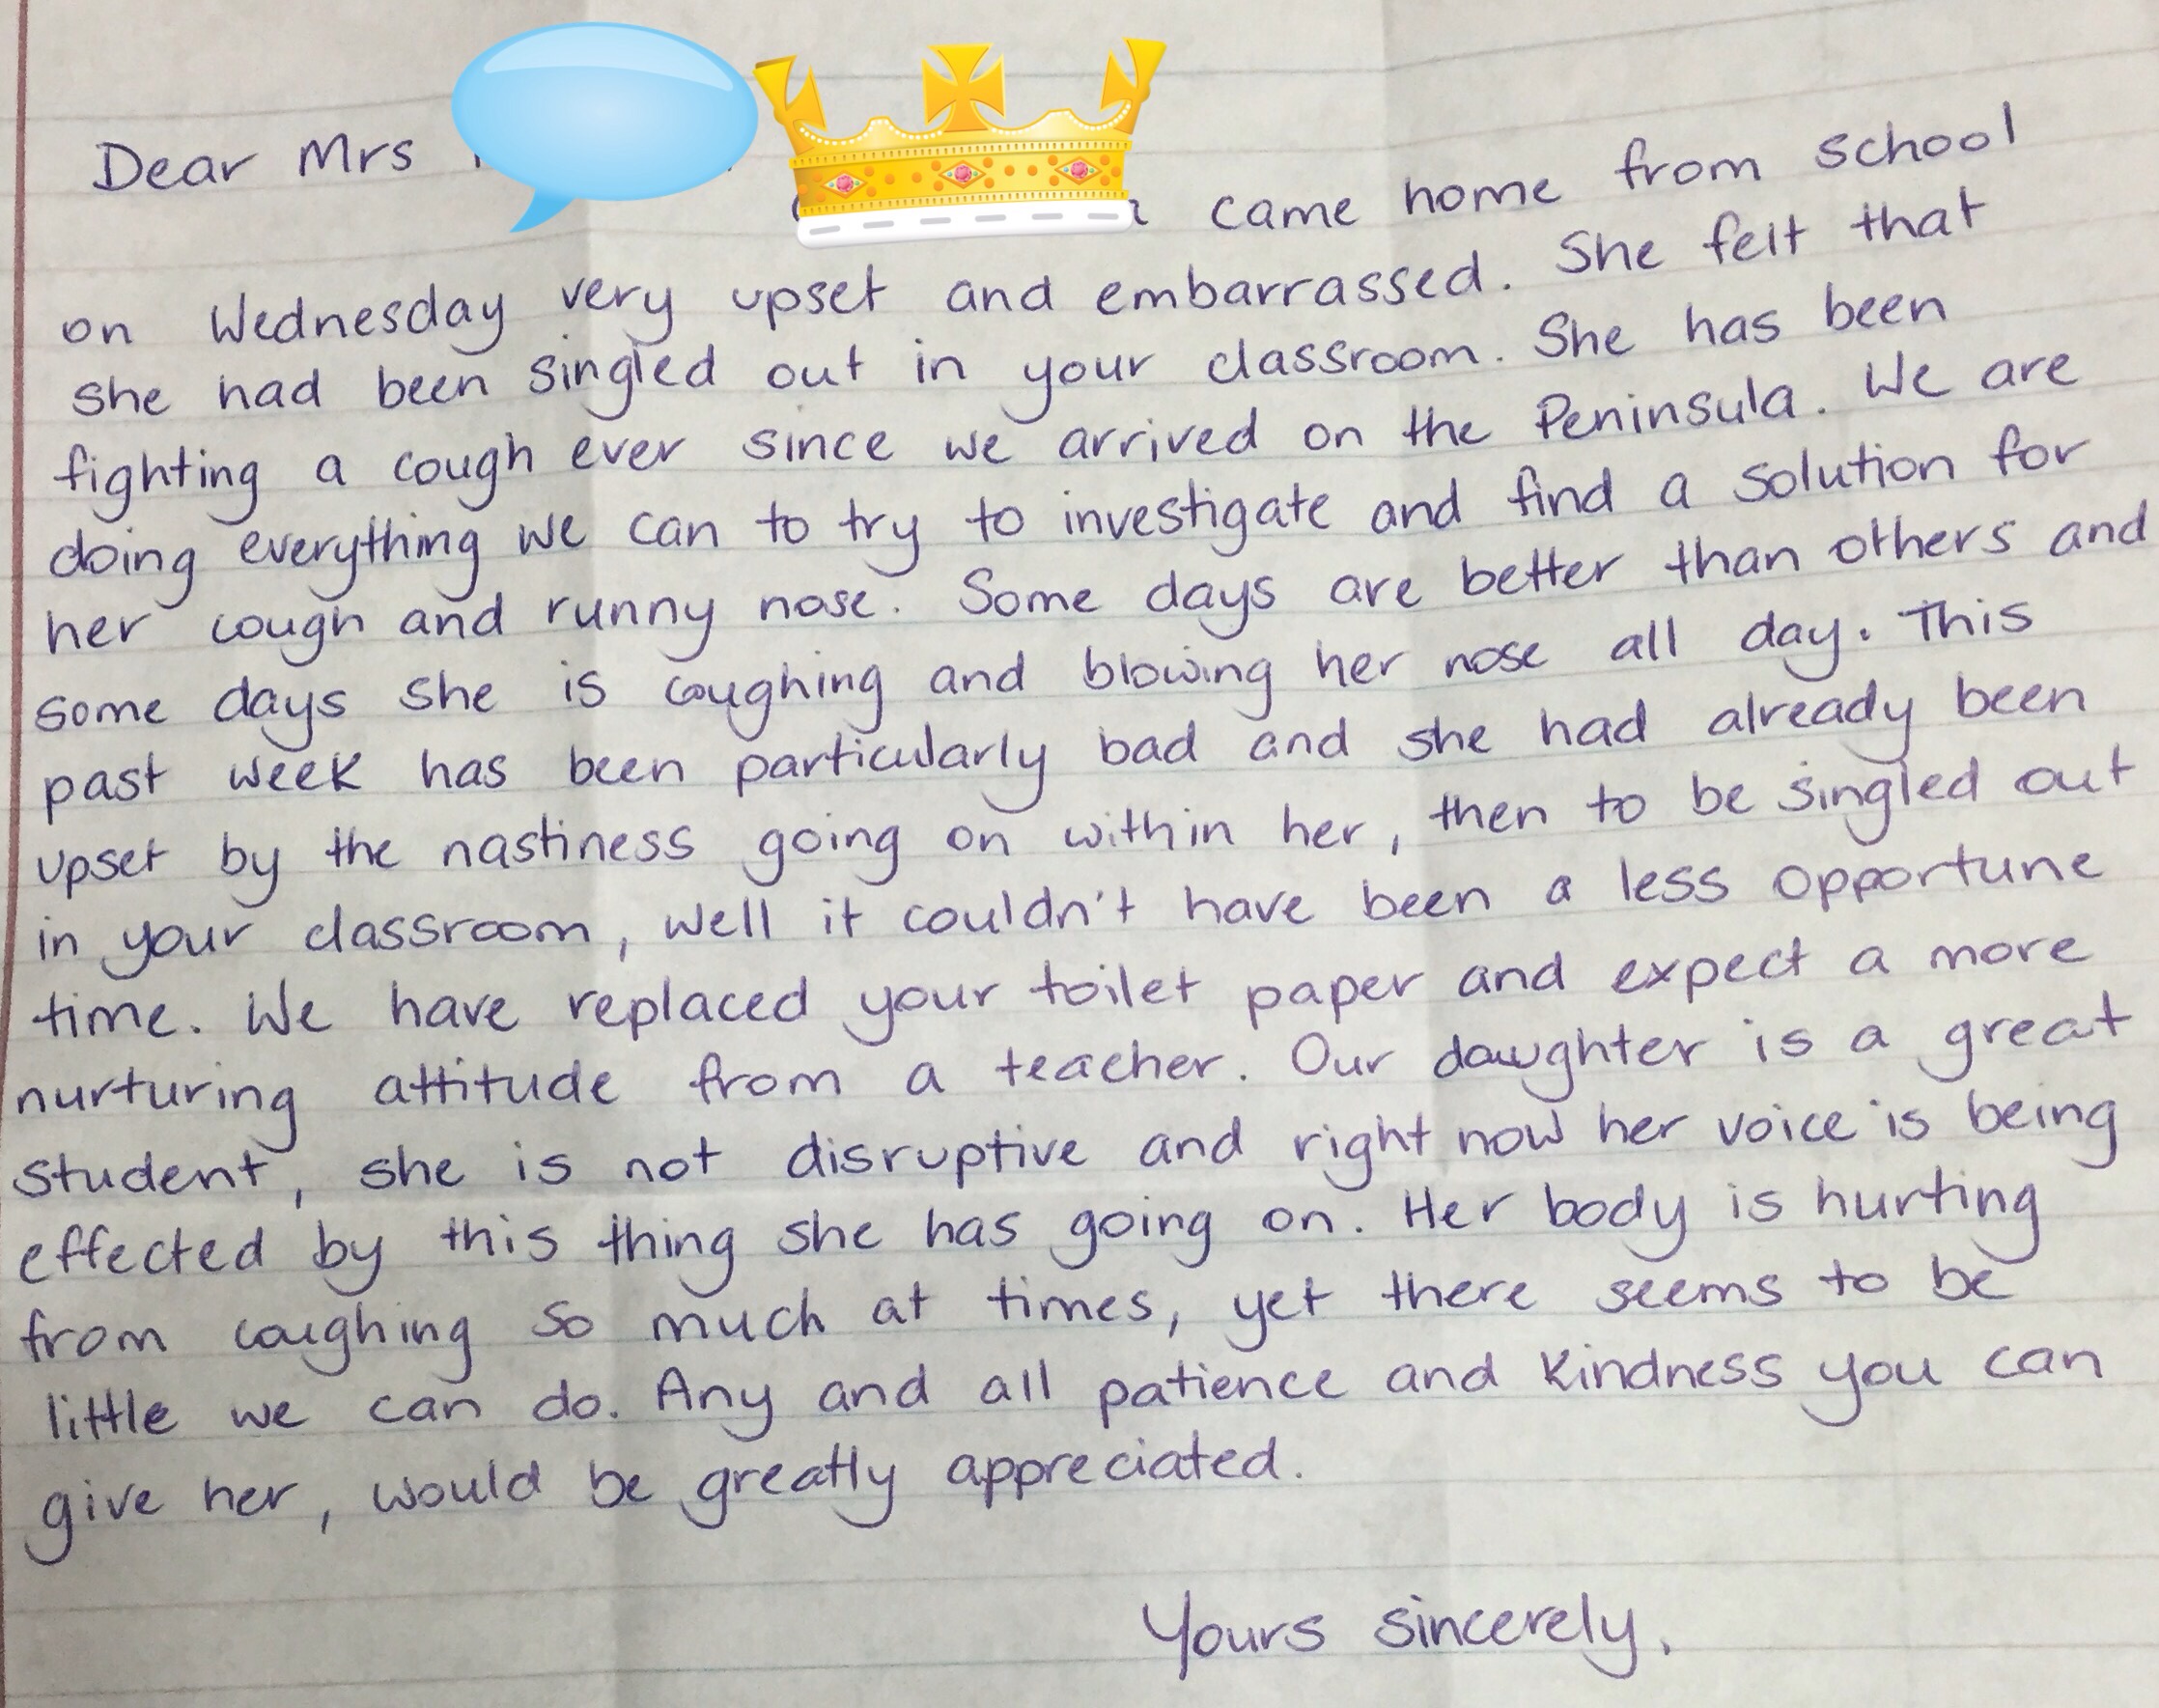 Dear Mrs
came home from school
on Wednesday very upset and embarrassed. She felt that
she had been singled out in your classroom. She has been
fighting a cough ever since we arrived on the Peninsula. We are
doing everything we can to try to investigate and find a solution for
her cough and runny nose. Some days are better than others and
some days she is coughing and blowing her nose all day. This
past week has been particularly bad and she had already been
upset by the nastiness going on within her, then to be singled out
in your classroom, well it couldn't have been a less opportune
time. We have replaced your toilet paper and expect a more
nurturing attitude from a teacher. Our daughter is a great
student, she is not disruptive and right now her voice is being
effected by this thing she has going on. Her body is hurting
from coughing so much at times, yet there seems to be
little we can do. Any and all patience and kindness you can
give her, would be greatly appreciated.
Yours sincerely,